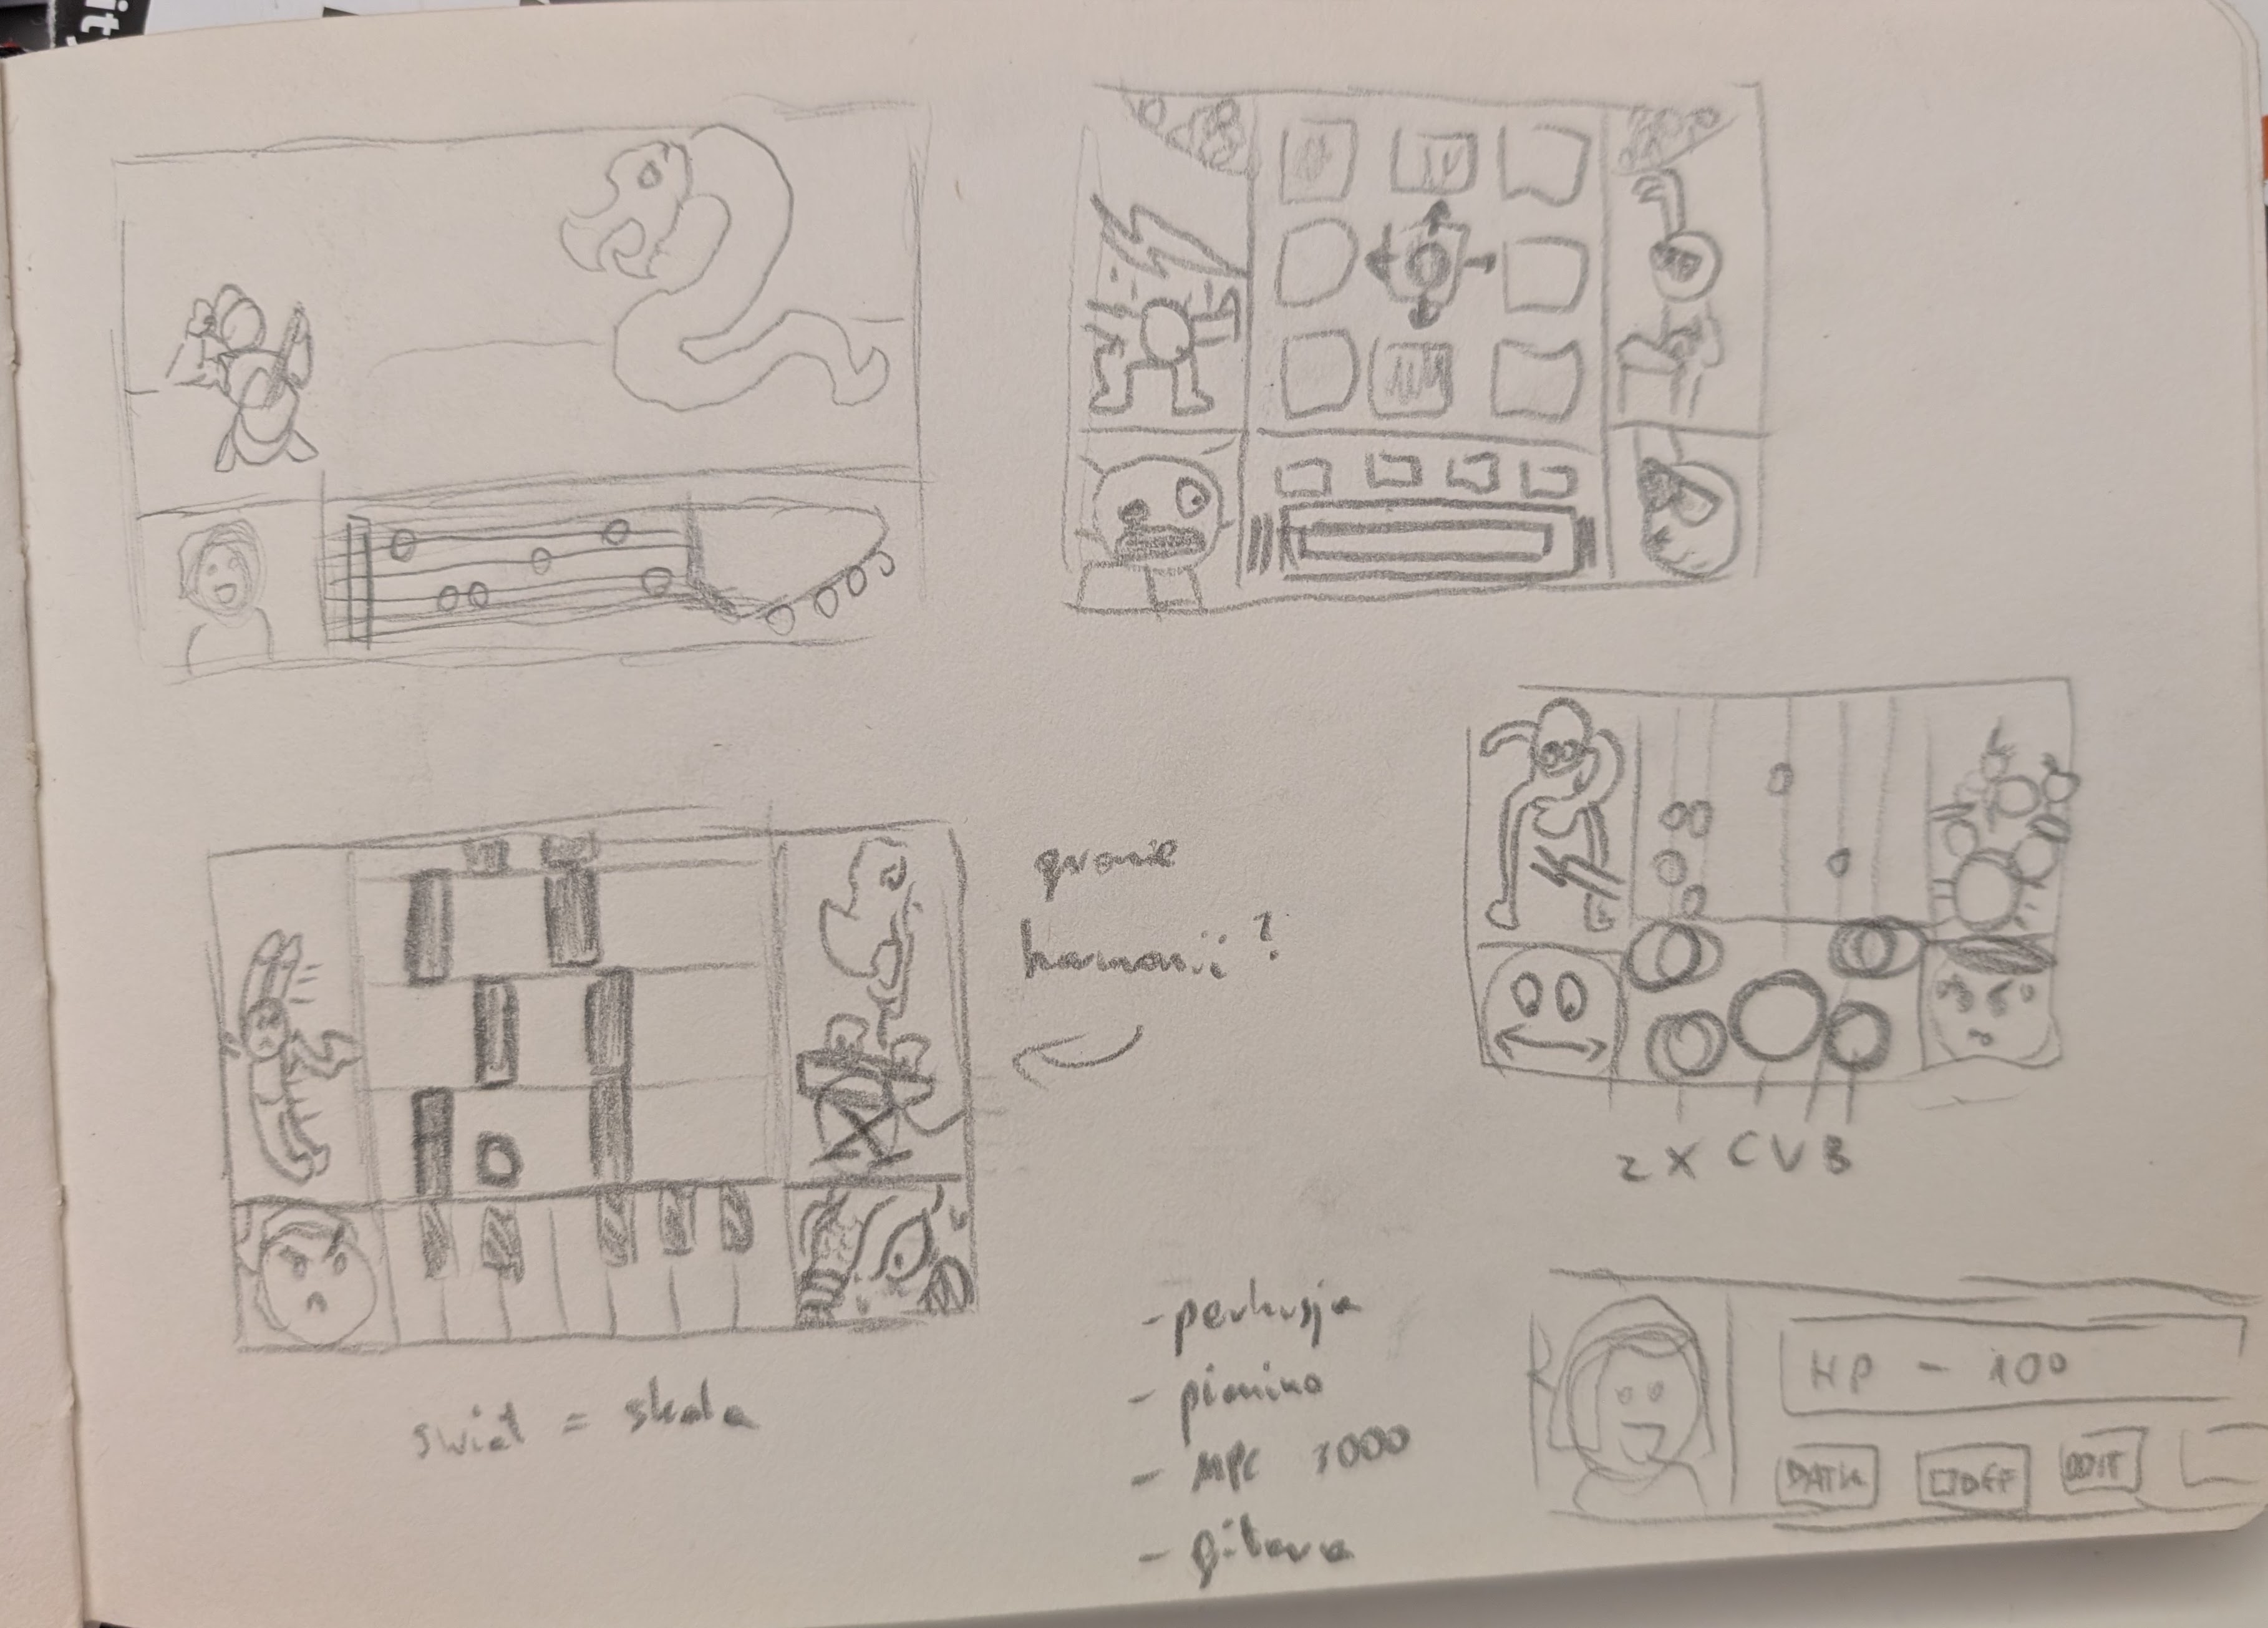 granie
harmonii?
2 X CVB
świat = skala
- perkusja
- pianino
- MPC 1000
- gitara
HP - 100